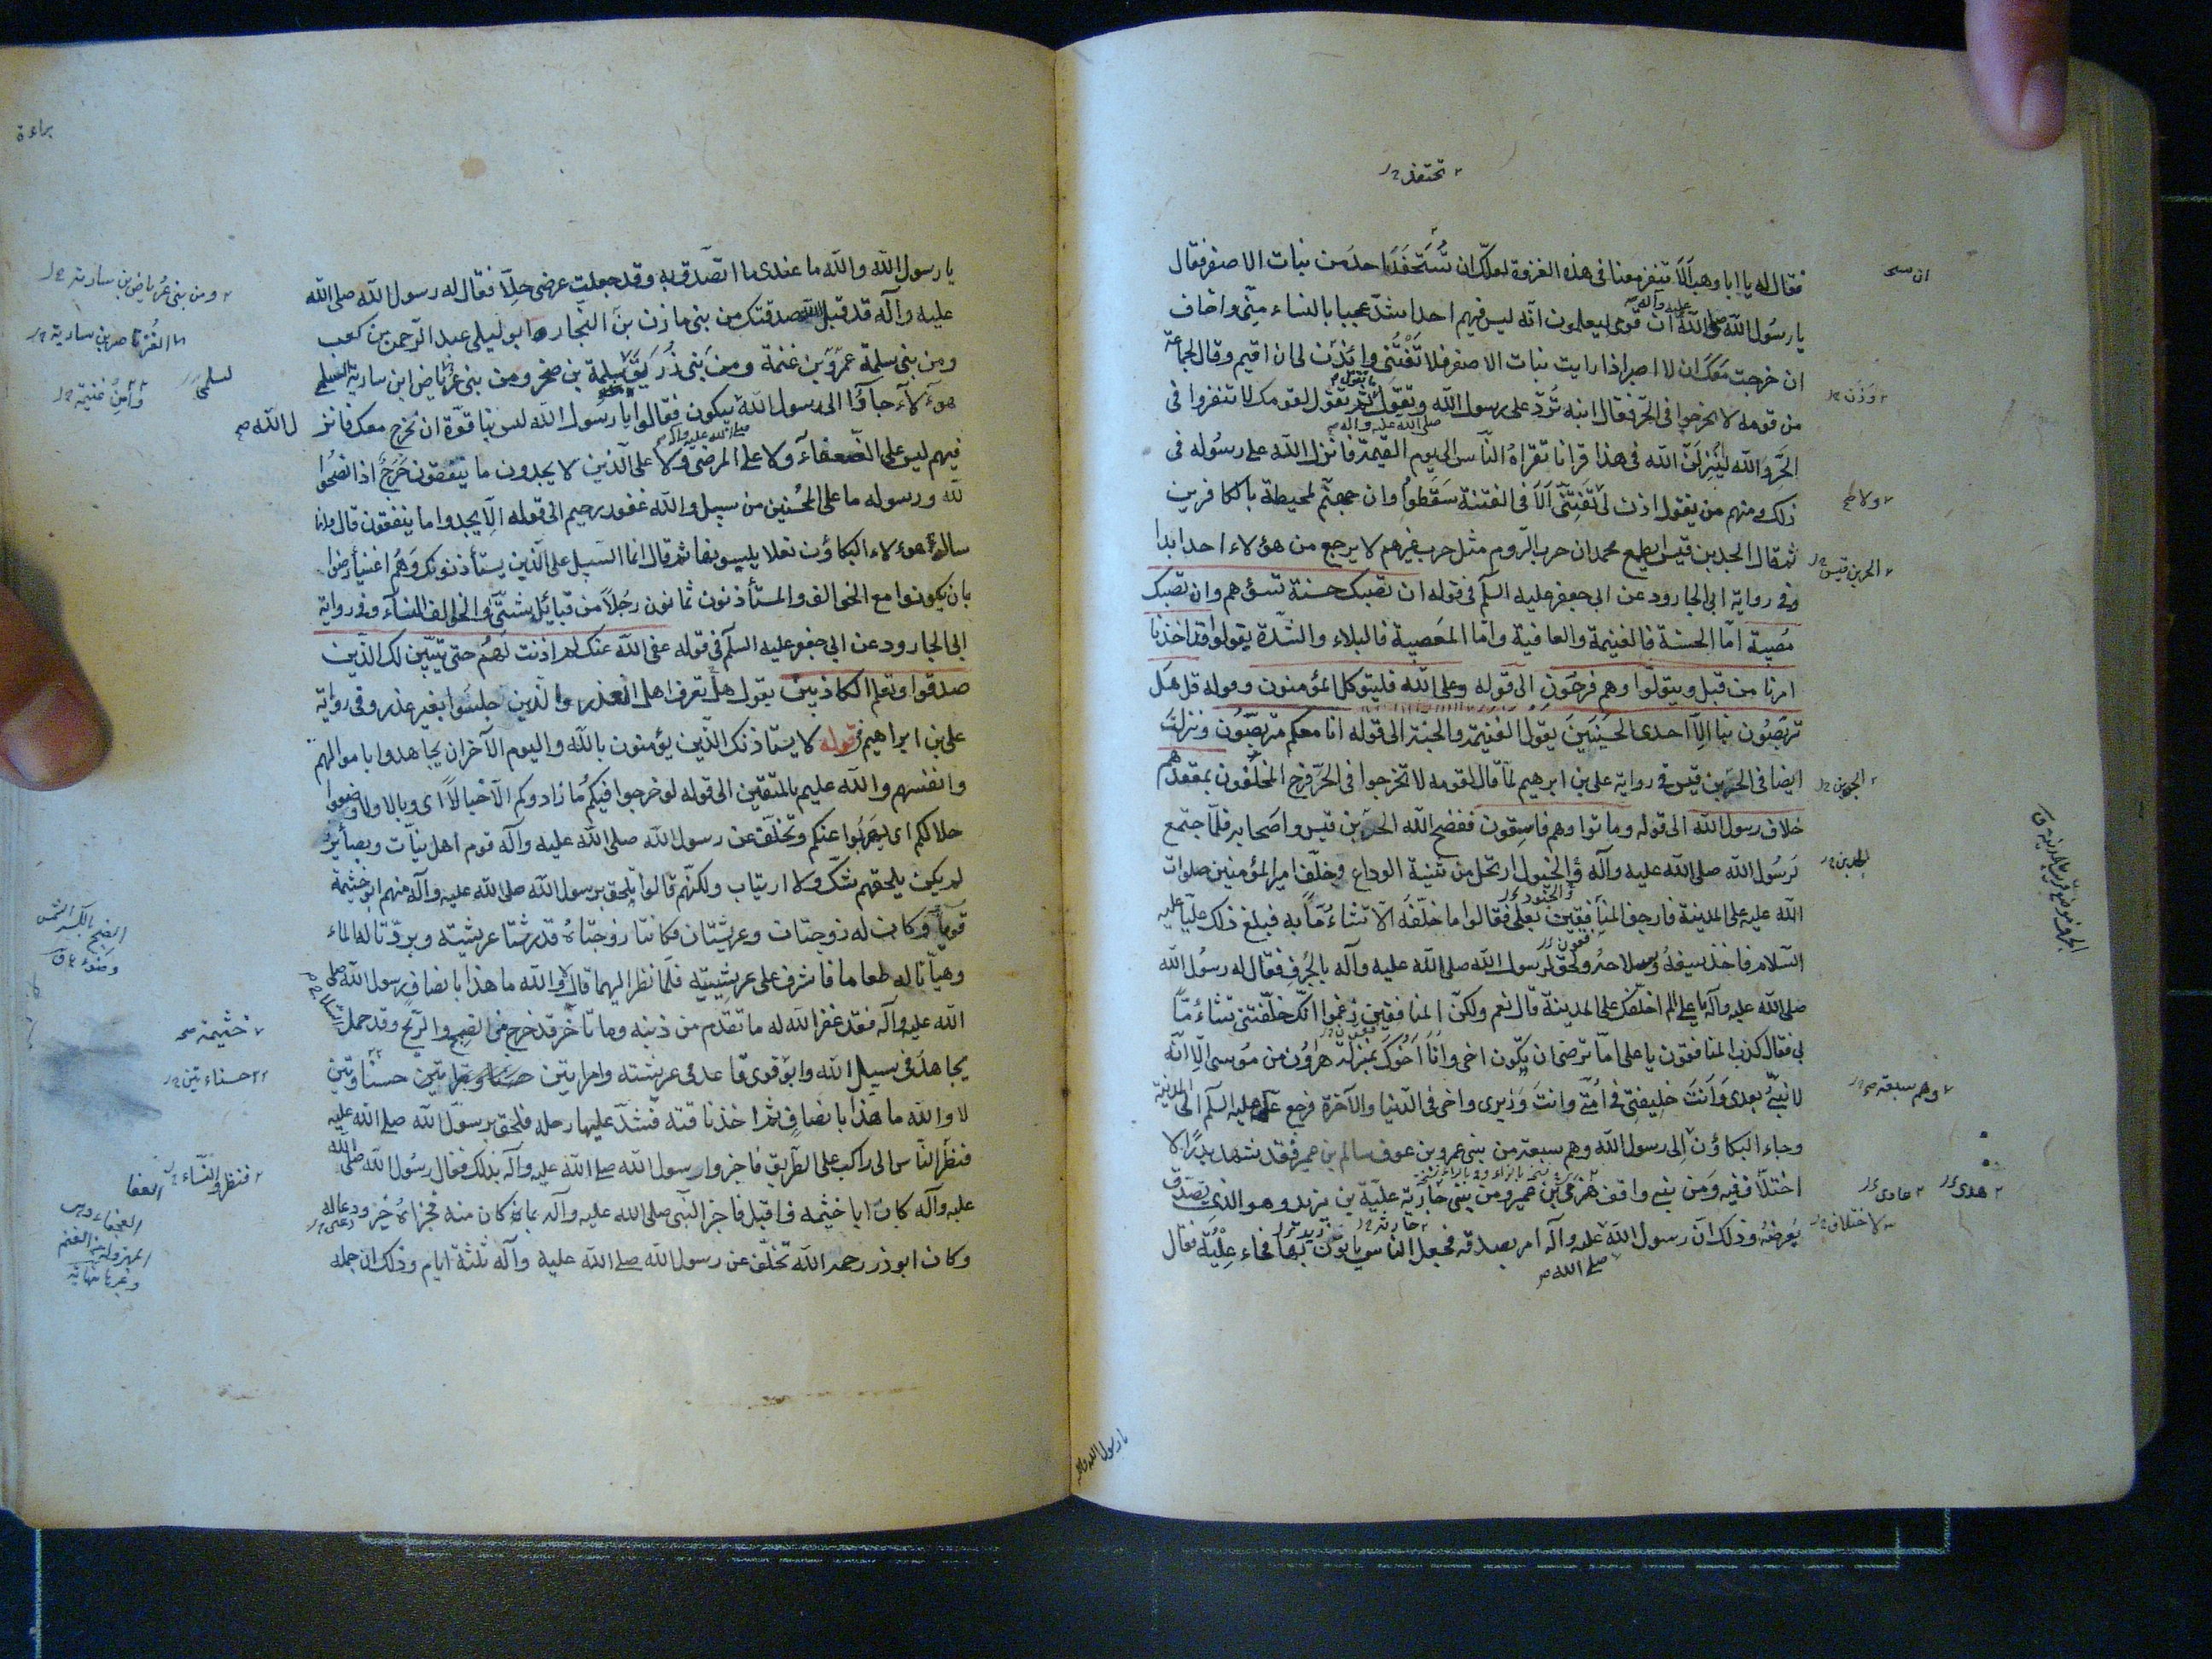 تحتفد
فقال له يا ابا وهب ألا تنفر معنا فى هذه الغزوة لعلّك ان تستحفد احد من بنات الاصفر فقال
يا رسول الله ان قومى ليعلمون انّه ليس فيهم احد اشدّ عجبا بالنساء منّى واخاف
ان خرجت معك ان لا اصبر اذا رايت بنات الاصفر فلا تفتنّى وائذن لى ان اقيم وقال لجماعة
من قومه لا تخرجوا فى الحرّ فقال ابنه تردّ على رسول الله وتقول ثم تقول لقومك لا تنفروا فى
الحرّ والله لينزلنّ الله فى هذا قرانا تقراه النّاس الى يوم القيمة فانزل الله على رسوله فى
ذلك ومنهم من يقول ائذن لى ولا تفتنّى ألا فى الفتنة سقطوا وان جهنّم لمحيطة بالكافرين
ثم قال الجد بن قيس ايطمع محمد ان حرب الروم مثل حرب غيرهم لا يرجع من هؤلاء احد ابدا
وفى رواية ابى الجارود عن ابى جعفر عليه السلم فى قوله ان تصبك حسنة تسؤهم وان تصبك
مصيبة امّا الحسنة فالغنيمة والعافية وامّا المصيبة فالبلاء والشدّة يقولوا قد اخذنا
امرنا من قبل ويتولّوا وهم فرحون الى قوله وعلى الله فليتوكل المؤمنون وقوله قل هل
تربّصون بنا إلّا احدى الحسنيين يقول الغنيمة والجنة الى قوله انا معكم متربّصون ونزلت
ايضا فى الجد بن قيس فى رواية على بن ابرهيم لمّا قال لقومه لا تخرجوا فى الحرّ فرح المخلّفون بمقعدهم
خلاف رسول الله الى قوله وماتوا وهم فاسقون ففضح الله الجد بن قيس واصحابه فلمّا اجتمع
لرسول الله صلى الله عليه وآله الخيول ارتحل من ثنية الوداع وخلّف امير المؤمنين صلوات
الله عليه على المدينة فارجف المنافقين بعلى فقالوا ما خلّفه الّا تشاءُماً به فبلغ ذلك عليّا عليه
السلام فاخذ سيفه وسلاحه ولحق برسول الله صلى الله عليه وآله بالجرف فقال له رسول الله
صلى الله عليه وآله يا على الم اخلّفك على المدينة قال نعم ولكنّ المنافقين زعموا انّك خلّفتنى تشاءُمًا
بى فقال كذب المنافقون يا على امّا ترضى ان يكون اخى وانا اخوك بمنزلة هرون من موسى الّا انّه
لا نبىّ بعدى وانت خليفتى فى امّتى وانت وزيرى واخى فى الدّنيا والآخرة فرجع على عليه السلم الى المدينة
وجاء البكاؤن الى رسول الله وهم سبعة من بنى عمرو بن عوف سالم بن عمير قد شهد بدرًا لا
اختلاف فيه ومن بنى واقف هرمى بن عمير ومن بنى حارثة علية بن يزيد وهو الذى تصدّق
بعرضه وذلك انّ رسول الله عليه وآله امر بصدقة فجعل الناس ياتون بها فجاء علية فقال
يا رسول الله والله
وزن
ولا
الحر بن قيس
الجد بن
وهم سبعة
هدى
عادى
لا اختلاف
براءة
يا رسول الله والله ما عندى ما اتصدّق به وقد جعلت عرضى حلّا فقال له رسول الله صلى الله
عليه وآله قد قبل الله صدقتك من بنى مازن بن النّجار ابو ليلى عبد الرّحمن بن كعب
ومن بنى سلمة عمرو بن غنمة ومن بنى زريق سلمة بن صخر ومن بنى عرباض ابن سارية السلمى
هؤلاء جاؤا الى رسول الله يبكون فقالوا يا رسول الله ليس بنا قوّة ان نخرج معك فانزل الله
فيهم ليس على الضعفاء ولا على المرضى ولا على الّذين لا يجدون ما ينفقون حرج اذا نصحوا
لله ورسوله ما على المحسنين من سبيل والله غفور رحيم الى قوله الّا يجدوا ما ينفقون قال وانما
سال هؤلاء البكاؤن نعلا يلبسونها ثم قال انما السبيل على الّذين يستأذنونك وهم اغنياء رضوا
بان يكونوا مع الخوالف والمستأذنون ثمانون رجلاً من قبائل شتّى والخوالف النساء وفى رواية
ابى الجارود عن ابى جعفر عليه السلم فى قوله عفى الله عنك لم اذنت لهم حتى يتبيّن لك الّذين
صدقوا وتعلم الكاذبين يقول هل تعرف اهل العذر والّذين جلسوا بغير عذر وفى رواية
على بن ابراهيم قوله لا يستاذنك الّذين يؤمنون بالله واليوم الآخر ان يجاهدوا باموالهم
وانفسهم والله عليم بالمتّقين الى قوله لو خرجوا فيكم ما زادوكم الّا خبالاً اى وبالا ولاوضعوا
خلالكم اى يهربوا عنكم وتخلّف عن رسول الله صلى الله عليه وآله قوم اهل نيّات وبصائر
لم يكن يلحقهم شكّ ولا ارتياب ولكنّهم قالوا نلحق برسول الله صلى الله عليه وآله منهم ابو خثيمة
قويا وكان له زوجتان وعريشتان فكانتا زوجتاه قد رشّتا عريشته وبرّدتا له الماء
وهيّأتا له طعاما فاشرف على عريشيته فلمّا نظر اليهما قال والله ما هذا بانصاف رسول الله صلى
الله عليه وآله فقد غفر الله له ما تقدّم من ذنبه وما تاخّر قد خرج فى الضح والريح وقد حمل
يجاهد فى سبيل الله وابو قوى قاعد فى عريشته وامراتين حسناوتين
لا والله ما هذا بانصاف ثم اخذ ناقته فشدّ عليها رحله فلحق برسول الله صلى الله عليه
فنظر النّاس الى راكب على الطّريق فاخبروا رسول الله صلى الله عليه وآله بذلك فقال رسول الله صلى الله
عليه وآله كان ابا خثيمه فاقبل فاخبر النّبى صلى الله عليه وآله بما كان منه فجزاه خير ودعا له
وكان ابو ذر رحمه الله تخلّف عن رسول الله صلى الله عليه وآله ثلثة ايام وذلك ان جمله
ومن بنى عرباض بن سارية
خثيمة
حسناءتين
فنظر النّساء